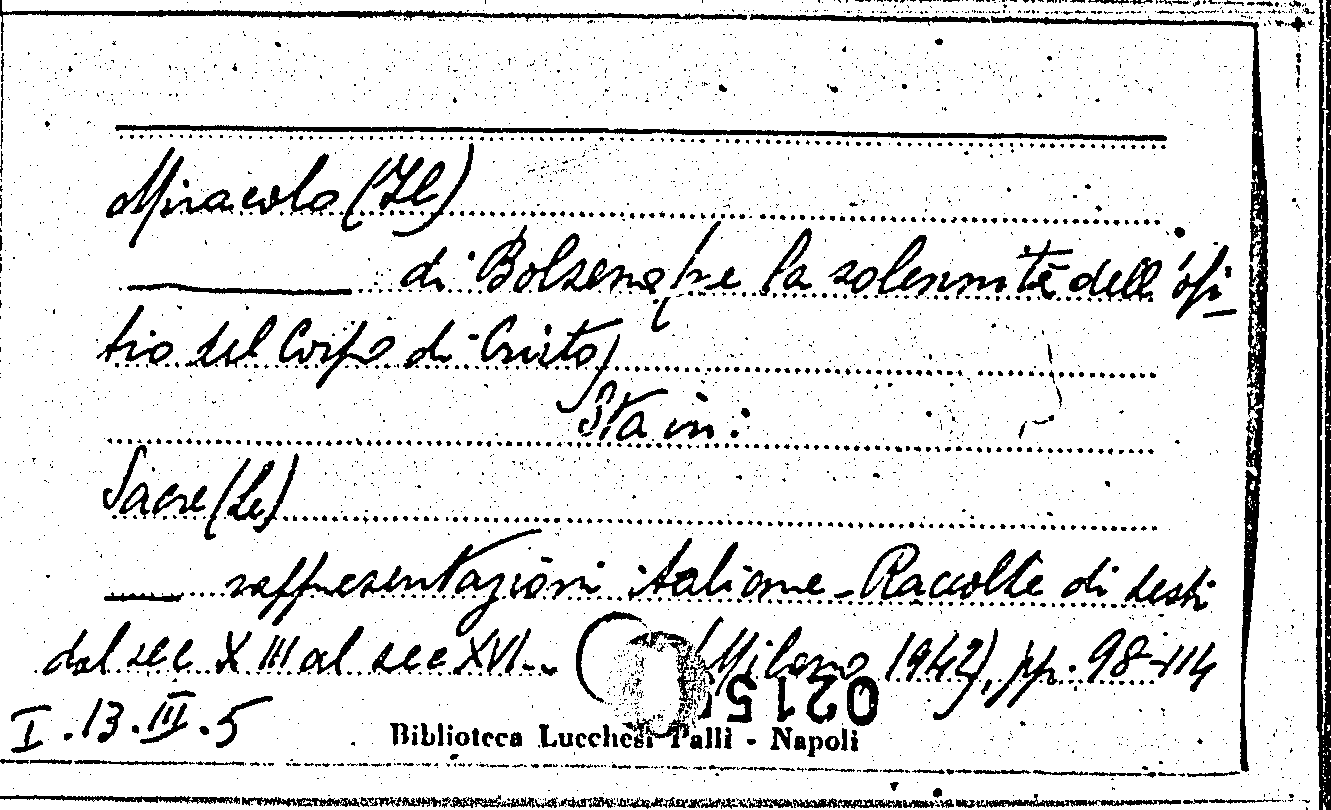 Miracolo (Il)
di Bolsena, e la solennità dell'ofi-
tio del Corpo di Cristo,
Sta in:
Sacre (Le)
rappresentazioni italiane - Raccolte di testi
dal sec XIII al sec XVI... (Milano 1942), pp. 98-114
I.13.III.5
0215
Biblioteca Lucchesi Palli - Napoli